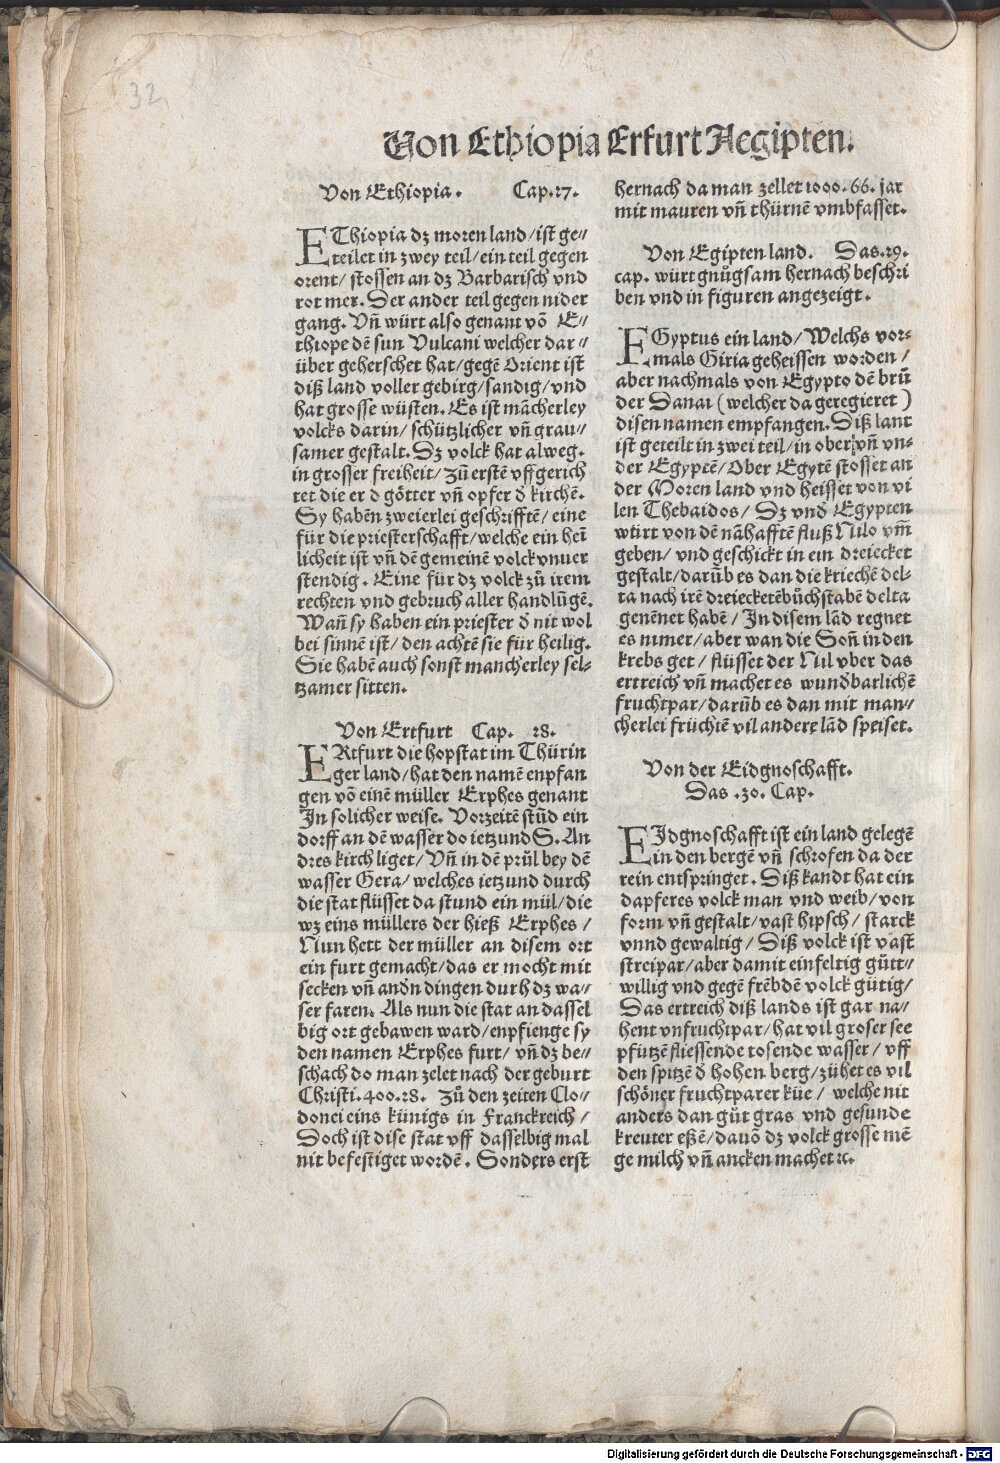 32
Von Ethiopia Erfurt Aegipten.
Von Ethiopia. Cap.27.
EThiopia dz moren land/ist ge⸗
teilet in zwey teil/ein teil gegen
orent/ stossen an dz Barbarisch vnd
rot mer. Der ander teil gegen nider
gang. Vñ würt also genant vō E⸗
thiope dē sun Vulcani welcher dar⸗
über geherschet hat/gegē Orient ist
diß land voller gebirg/sandig/vnd
hat grosse wüsten. Es ist mācherley
volcks darin/ schützlicher vñ grau⸗
samer gestalt. Dz volck hat alweg.
in grosser freiheit/ zů erstē vffgerich
tet die er d götter vñ opfer d̄ kirchē.
Sy habēn zweierlei geschrifftē/ eine
für die priesterschafft/welche ein hei
licheit ist vñ dē gemeinē volck vnuer
stendig. Eine für dz volck zů irem
rechten vnd gebruch aller handlūgē.
Wañ sy haben ein priester d̄ nit wol
bei sinnē ist/ den achtē sie für heilig.
Sie habē auch sonst mancherley sel⸗
tzamer sitten.
Von Ertfurt Cap. 28.
ERtfurt die hopstat im Thürin
ger land/hat den namē enpfan
gen vō einē müller Erphes genant
In solicher weise. Vorzeitē stůd ein
dorff an dē wasser do ietzund S. An
dres kirch liget/ Vñ in dē průl bey dē
wasser Gera/ welches ietzund durch
die stat flüsset da stund ein mül/die
wz eins müllers der hieß Erphes /
Nun hett der müller an disem ort
ein furt gemacht/das er mocht mit
secken vñ andn dingen durh dz wa⸗
ser faren. Als nun die stat an dassel
big ort gebawen ward/enpfienge sy
den namen Erphes furt/ vñ dz be⸗
schach do man zelet nach der geburt
Christi.400.28. Zů den zeiten Clo⸗
donei eins künigs in Franckreich /
Doch ist dise stat vff dasselbig mal
nit befestiget wordē. Sonders erst
hernach da man zellet 1000.66. jar
mit mauren vñ thürnē vmbfasset.
Von Egipten land. Das.29.
cap. würt gnůgsam hernach beschri
ben vnd in figuren angezeigt.
EGyptus ein land/ Welchs vor⸗
mals Giria geheissen worden /
aber nachmals von Egypto dē brů
der Danai (welcher da geregieret)
disen namen empfangen. Diß lant
ist geteilt in zwei teil/in ober vñ vn⸗
der Egyptē/Ober Egytē stosset an
der Moren land vnd heisset von vi
len Thebaidos/ Dz vnd̄ Egypten
würt von dē nāhafftē fluß Nilo vm̄
geben/ vnd geschickt in ein dreiecket
gestalt/darūb es dan die kriechē del⸗
ta nach irē dreiecketē bůchstabē delta
genēnet habē/ In disem lād regnet
es nimer/aber wan die Soñ in den
krebs get/ flüsset der Nil vber das
ertreich vñ machet es wundbarlichē
fruchtpar/darūb es dan mit man⸗
cherlei früchtē vil andere lād speiset.
Von der Eidgnoschafft.
Das .30. Cap.
EIdgnoschafft ist ein land gelegē
in den bergē vñ schrofen da der
rein entspringet. Diß kandt hat ein
dapferes volck man vnd weib/von
form vñ gestalt/vast hipsch/ starck
vnnd gewaltig/ Diß volck ist vast
streipar/aber damit einfeltig gütt⸗
willig vnd gegē frēbdē volck gütig/
Das ertreich diß lands ist gar na⸗
hent vnfruchtpar/hat vil groser see
pfützē fliessende tosende wasser/ vff
den spitzē d̄ hohen berg/zühet es vil
schöner fruchtparer küe/ welche nit
anders dan gůt gras vnd gesunde
kreuter eßē/dauō dz volck grosse mē
ge milch vñ ancken machet ꝛc.
Digitalisierung gefördert durch die Deutsche Forschungsgemeinschaft - DFG